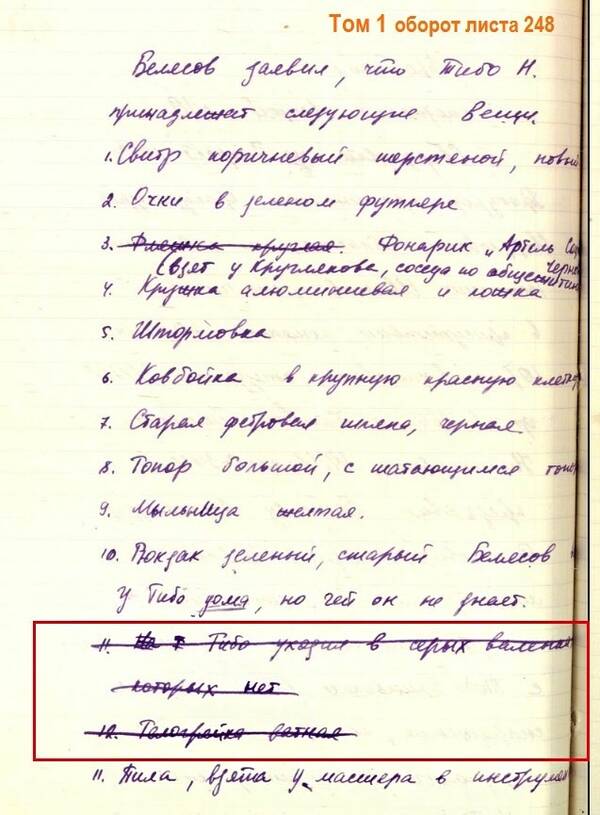 Том 1 оборот листа 248
Белесов заявил, что Тибо Н.
принадлежат следующие вещи.
1. Свитр коричневый шерстеной, новый
2. Очки в зеленом футляре
3. Фляжка круглая. Фонарик „Артель
(взят у Круглякова, соседа по общежитию
4. Кружка алюминиевая и ложка
5. Штормовка
6. Ковбойка в крупную красную клетку
7. Старая фетровая шляпа, черная
8. Топор большой, с шатающимся топор
9. Мыльница желтая.
10. Рюкзак зеленый, старый Белесов
у Тибо дома, но чей он не знает.
11. На Тибо уходил в серых валенках
которых нет
12. Телогрейка ватная
11. Пила, взята у мастера в инструмен